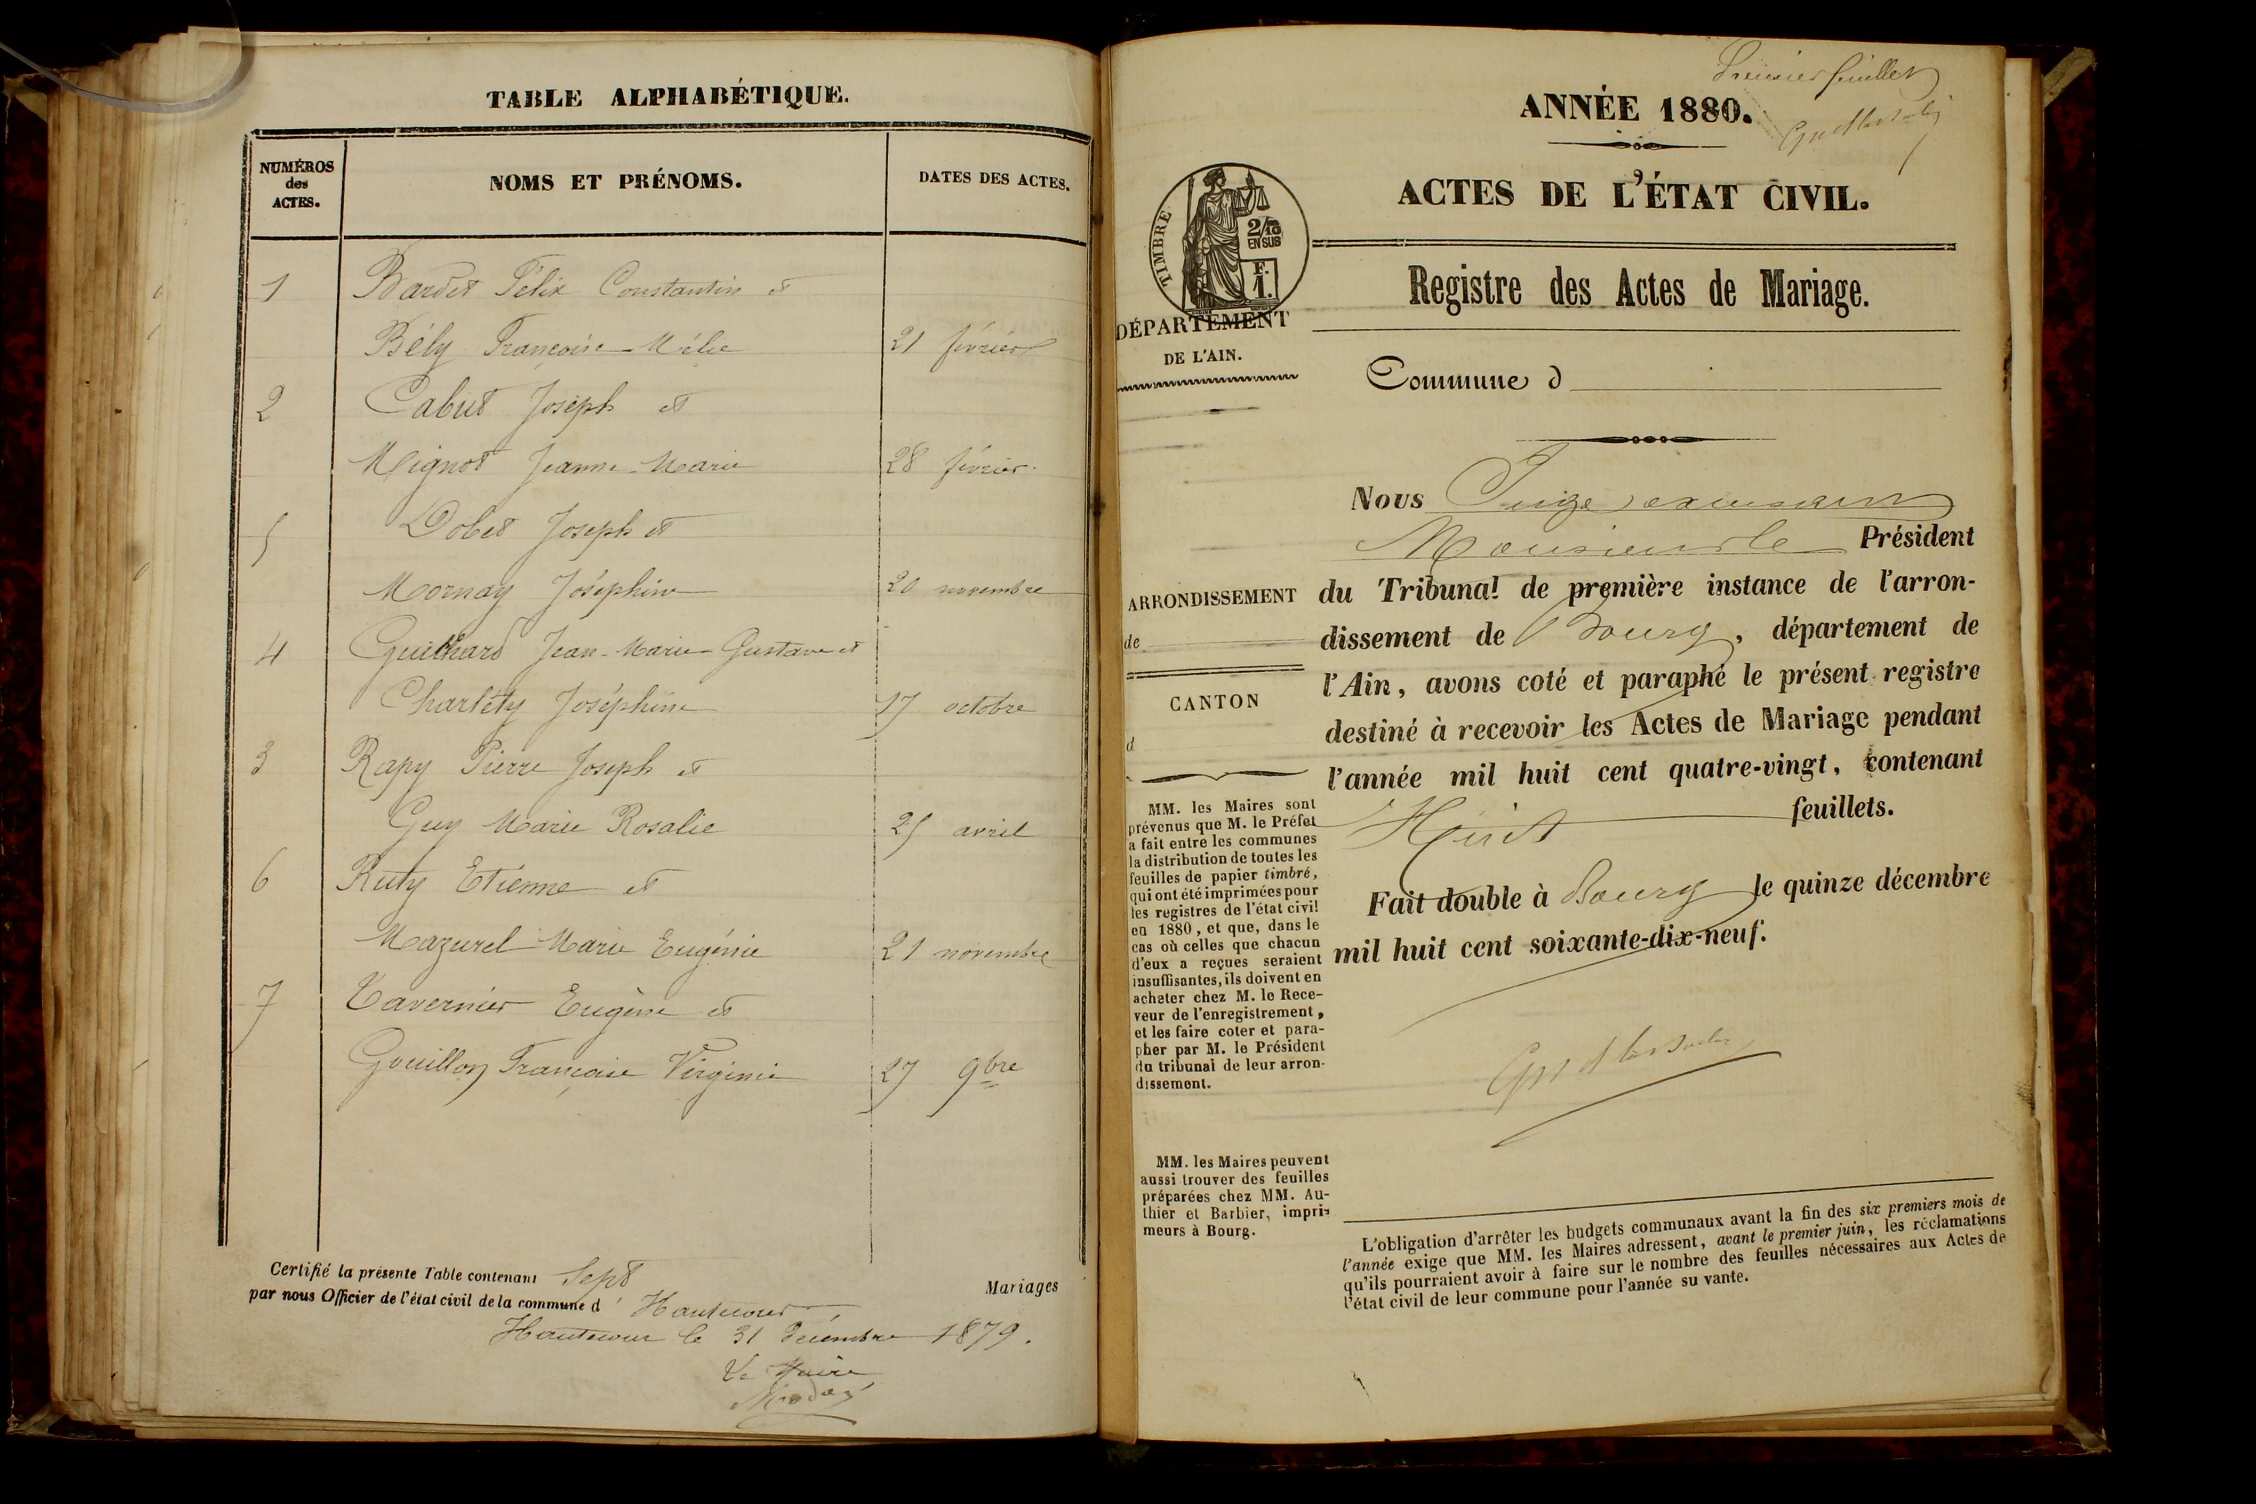 TABLE ALPHABÉTIQUE.
NUMÉROS
des
ACTES.
NOMS ET PRÉNOMS.
DATES DES ACTES.
1 Bardet Félix Constantin et
Bély Françoise Mélie 21 février
2 Cabut Joseph et
Mignot Jeanne-Marie 28 février.
5 Dobet Joseph et
Mornay Joséphine 20 novembre
4 Guichard Jean-Marie Gustave et
Charléty Joséphine 17 octobre
3 Rapy Pierre Joseph et
Guy Marie Rosalie 25 avril
6 Ruty Etienne et
Mazurel Marie Eugénie 21 novembre
7 Tavernier Eugène et
Gouillon Françoise Virginie 27 9bre
Certifié la présente Table contenant Sept Mariages
par nous Officier de l'état civil de la commune d'Hautecour
Hautecour le 31 Décembre 1879.
Le Maire
Premier feuillet
ANNÉE 1880.
ACTES DE L'ÉTAT CIVIL.
TIMBRE
2/10
EN SUS
F.
1.
Registre des Actes de Mariage.
DÉPARTEMENT
DE L'AIN.
Commune d
Nous Juge
Monsieur le Président
ARRONDISSEMENT
de
CANTON
d
du Tribunal de première instance de l'arron-
dissement de Bourg, département de
l'Ain, avons coté et paraphé le présent registre
destiné à recevoir les Actes de Mariage pendant
l'année mil huit cent quatre-vingt, contenant
Huit feuillets.
Fait double à Bourg le quinze décembre
mil huit cent soixante-dix-neuf.
MM. les Maires sont
prévenus que M. le Préfet
a fait entre les communes
la distribution de toutes les
feuilles de papier timbré,
qui ont été imprimées pour
les registres de l'état civil
en 1880, et que, dans le
cas où celles que chacun
d'eux a reçues seraient
insuffisantes, ils doivent en
acheter chez M. le Rece-
veur de l'enregistrement,
et les faire coter et para-
pher par M. le Président
du tribunal de leur arron-
dissement.
MM. les Maires peuvent
aussi trouver des feuilles
préparées chez MM. Au-
thier et Barbier, impri-
meurs à Bourg.
L'obligation d'arrêter les budgets communaux avant la fin des six premiers mois de
l'année exige que MM. les Maires adressent, avant le premier juin, les réclamations
qu'ils pourraient avoir à faire sur le nombre des feuilles nécessaires aux Actes de
l'état civil de leur commune pour l'année su vante.